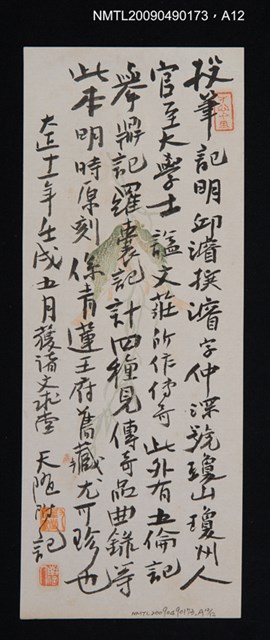 NMTL20090490173，A12
投筆記明邱濬撰濬字仲深號瓊山瓊州人
官至大學士謚文莊所作傳奇此外有五倫記
舉鼎記羅囊記計四種見傳奇品曲錄等
此本明時原刻係青蓮王府舊藏尤可珍也
大正十一年壬戌五月獲諸文求堂 天隨 記
NMTL20090490173,A12/12